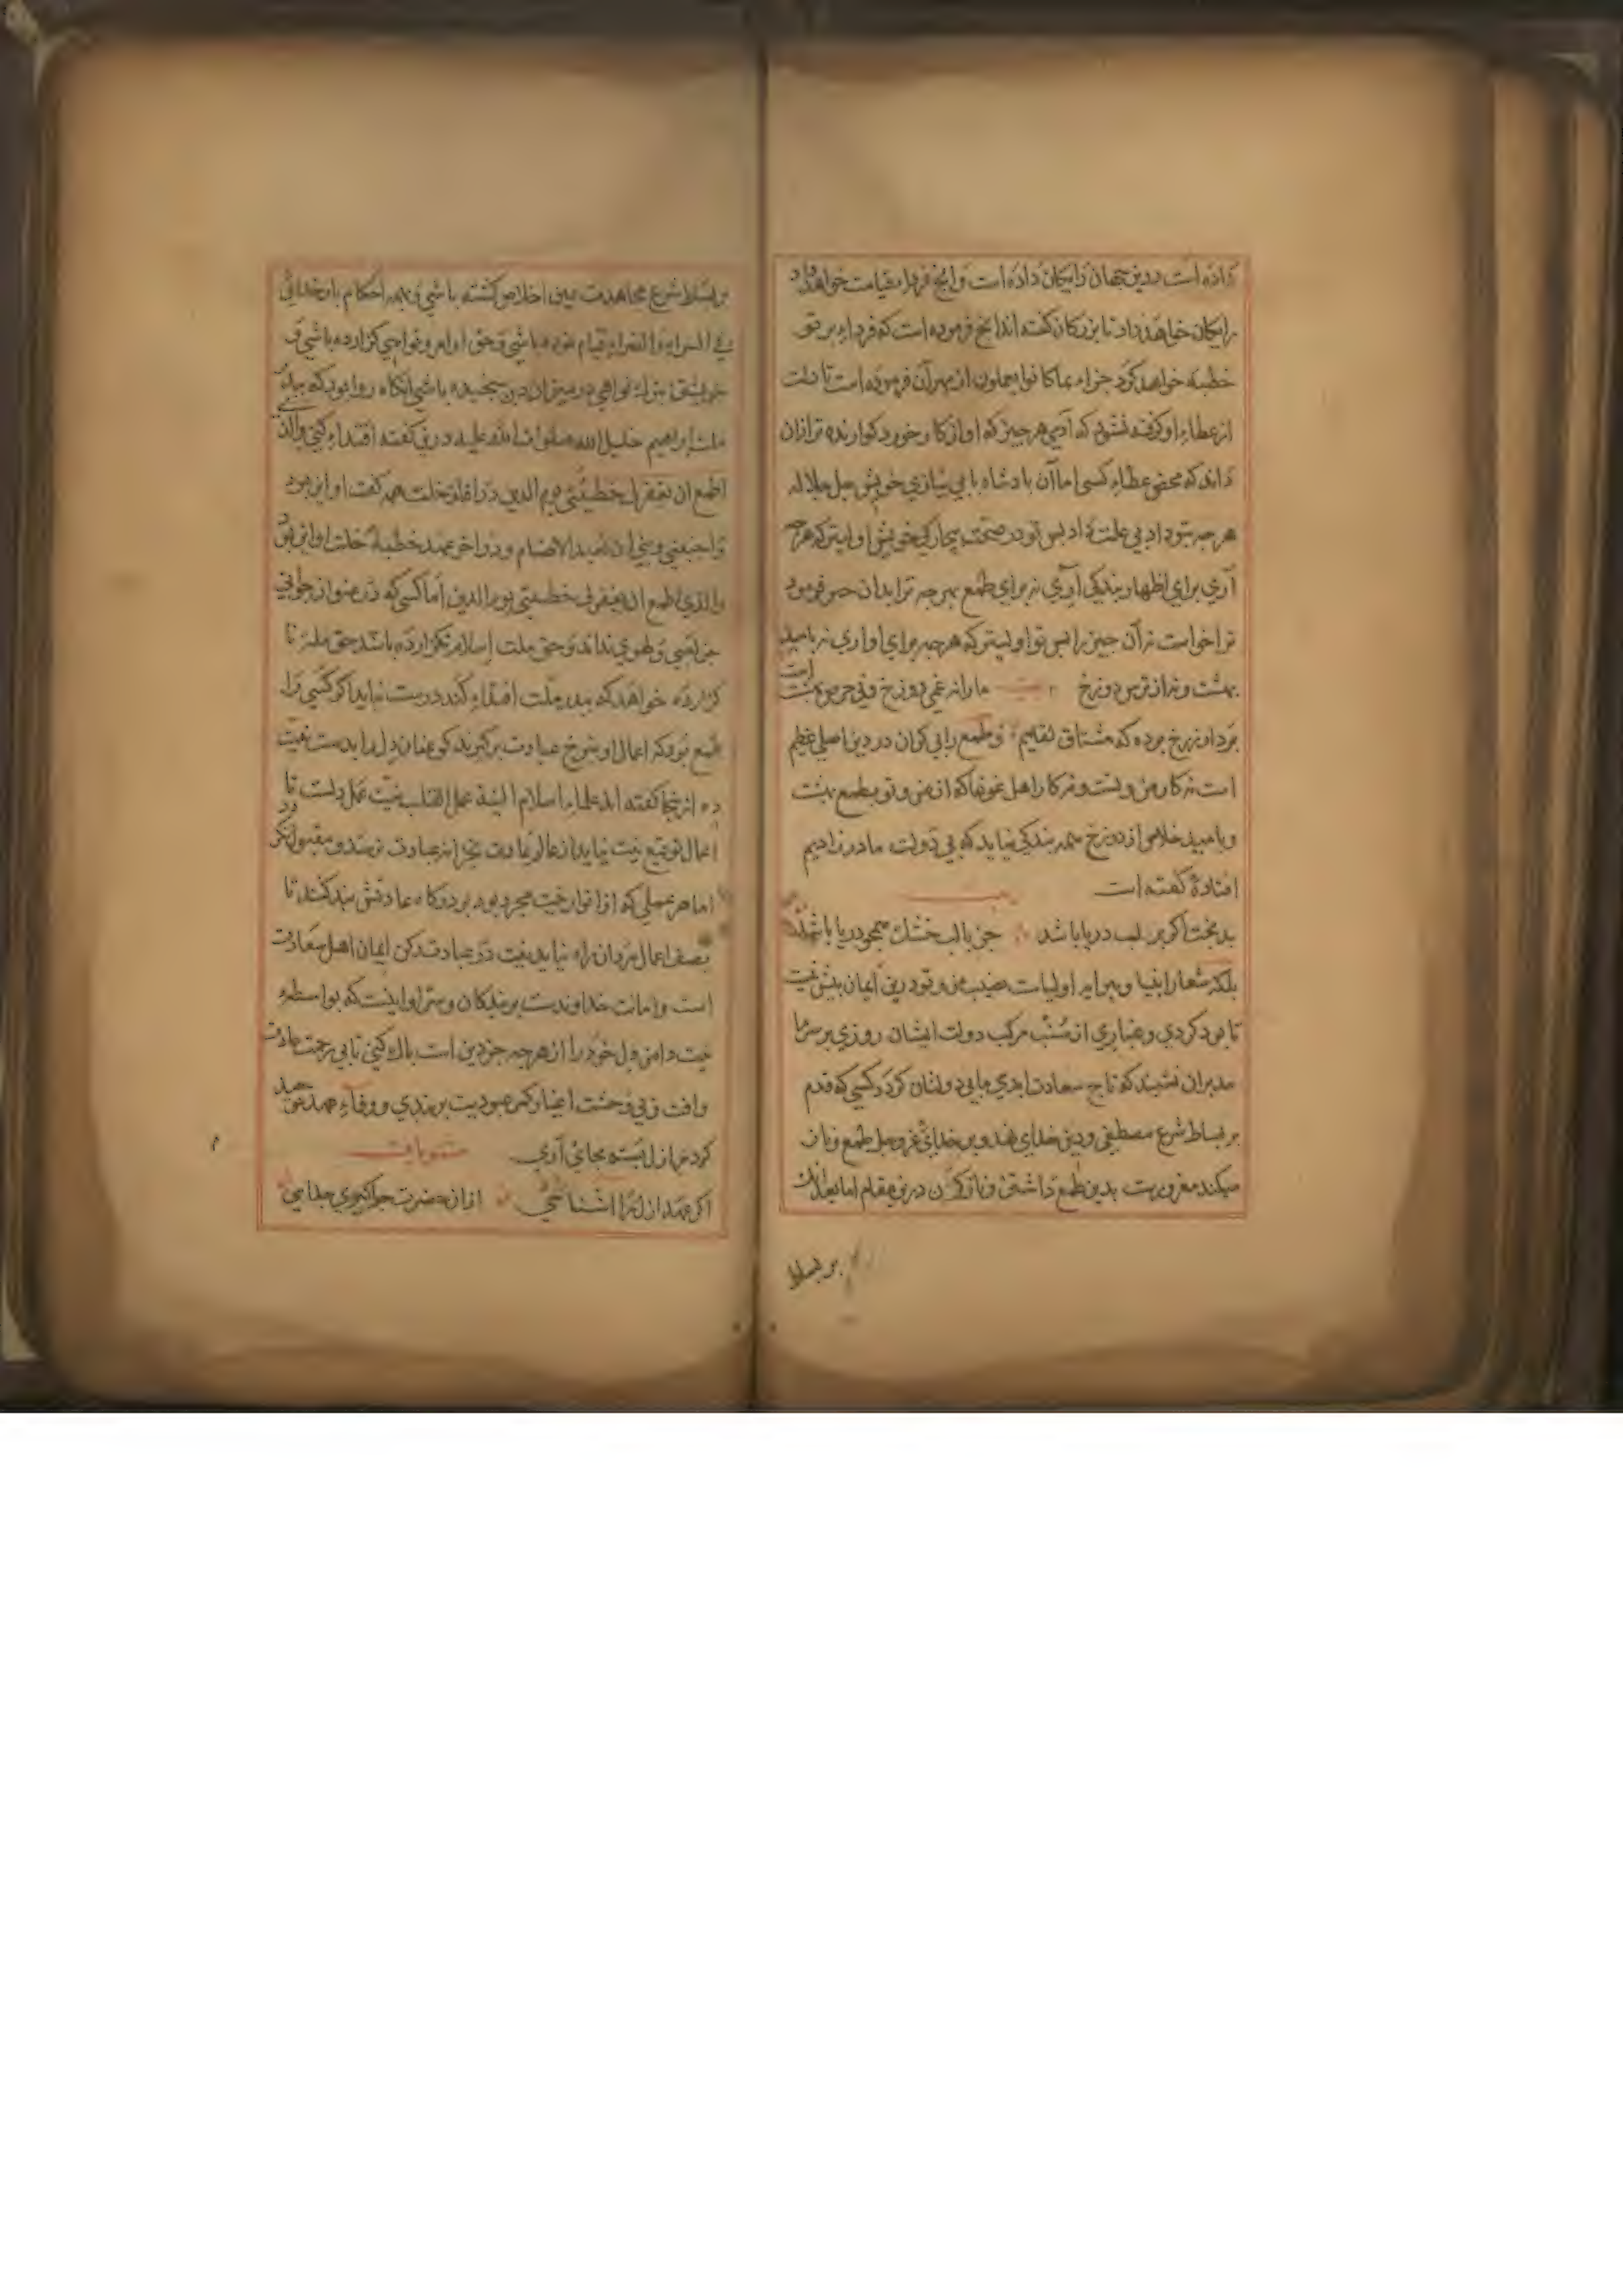 داده است درین جهان رایکان داده است و انچ فردا بقیامت خواهد داد
رایکان خواهد داد تا بزرکان کفته اند انچ فرموده است که فرداء بر تو
خطبه خواهد کرد جزاء بما کانوا یعملون از بهر آن فرموده است تا دلت
از عطاء او کرفته نشود که آدمی هر چیز که او از کار خورد کوارنده تر ازان
داند که محض عطاء کسی اما آن بادشاه با بی نیازی خویش جل جلاله
هرچه بتو داد بی علت داد بس تو در صحت بیچارکی خویش اولیتر که هرچه
آری برای اظهار بندکی آری نه برای طمع بهرچه ترا بدان
ترا خواست نه آن چیز را بس تو اولیتر که هرچه برای او اری نه بامید
بهشت و نه از ترس دوزخ ما را نه غم دوزخ و نی حرص بهشت است
بردار ز رخ برده که مشتاق لقایم و طمع را بی کران در دین اصلی عظیم
است نه کار من و تست و نه کار اهل که از من و تو بطمع بهشت
و بامید خلاصی از دوزخ همه بندکی نیاید که بی دولت مادر زادیم
افتاده کفته است
بدبخت اکر بر لب دریا باشد جز با لب خشک همچو دریا باشد
بلکه شعار انبیا و اولیاست نصیب من و تو درین ایمان بیش نیست
تا بود کردی و غباری از سنب مرکب دولت ایشان روزی بر سر ما
مدبران نشیند که تاج سعادت ابدی ما بی دولتان کردد کسی که قدم
بر بساط شرع مصطفی و دین خدای نهد و بر خدای عز و جل طمع و ناز
میکند مغرور نیست بدین طمع داشتن و ناز کردن درین مقام اما بعد ازانک
بر بساط
بر بساط شرع مجاهدت عین اخلاص کشته باشی و بهمه احکام بار خدائی
فی السراء و الضراء قیام نموده باشی و حق اوامر و نواهی کزارده باشی و
خویشتن بترک نواهی در میزان دین سنجیده باشی آنکاه روا بود که ببدر
ملت ابراهیم خلیل الله صلوات الله علیه درین کفته اقتداء کنی والذی
اطمع ان یغفر لی خطیئتی یوم الدین در اول خلت همه کفت او این بود
واجنبنی وبنی ان نعبد الاصنام و در اخر عهد خطبه خلت او این بود
والذی اطمع ان یغفر لی خطیئتی یوم الدین اما کسی که در عنوان جوانی
جز لعبی و لهوی نداند و حق ملت اسلام نکزارده باشد حق ملت نا
کزارده خواهد که ببدر ملت اقتداء کند درست نیاید اکر کسی را
طمع بود که اعمال او عبادت بر کیرند کو عنان دل را بدست نیت
ده از ینجا کفته اند علماء اسلام النیة عمل القلب نیت عمل دلست تا
اعمال توقیع نیت نیابد از عالم عادت بخزانه عبادت نرسد و مقبول نکردد
اما هر عملی که از انوار نیت مجرد بود بر درکاه عادتش بند کنند تا
بصف اعمال مردان راه نیابد نیت در عبادت رکن ایمان اهل سعادت
است و امانت خداوندست بر بندکان و سزاوار اینست که بواسطه
نیت دامن دل خود را از هرچه جز دین است باک کنی تا بی زحمت عادت
وافت و بی وحشت اغیار کمر عبودیت بر بندی و وفاء عهد
کرده در ازل بسته بجای آری
اکر عهد ازل را اشناسی از ان حضرت چرا کیری جدایی